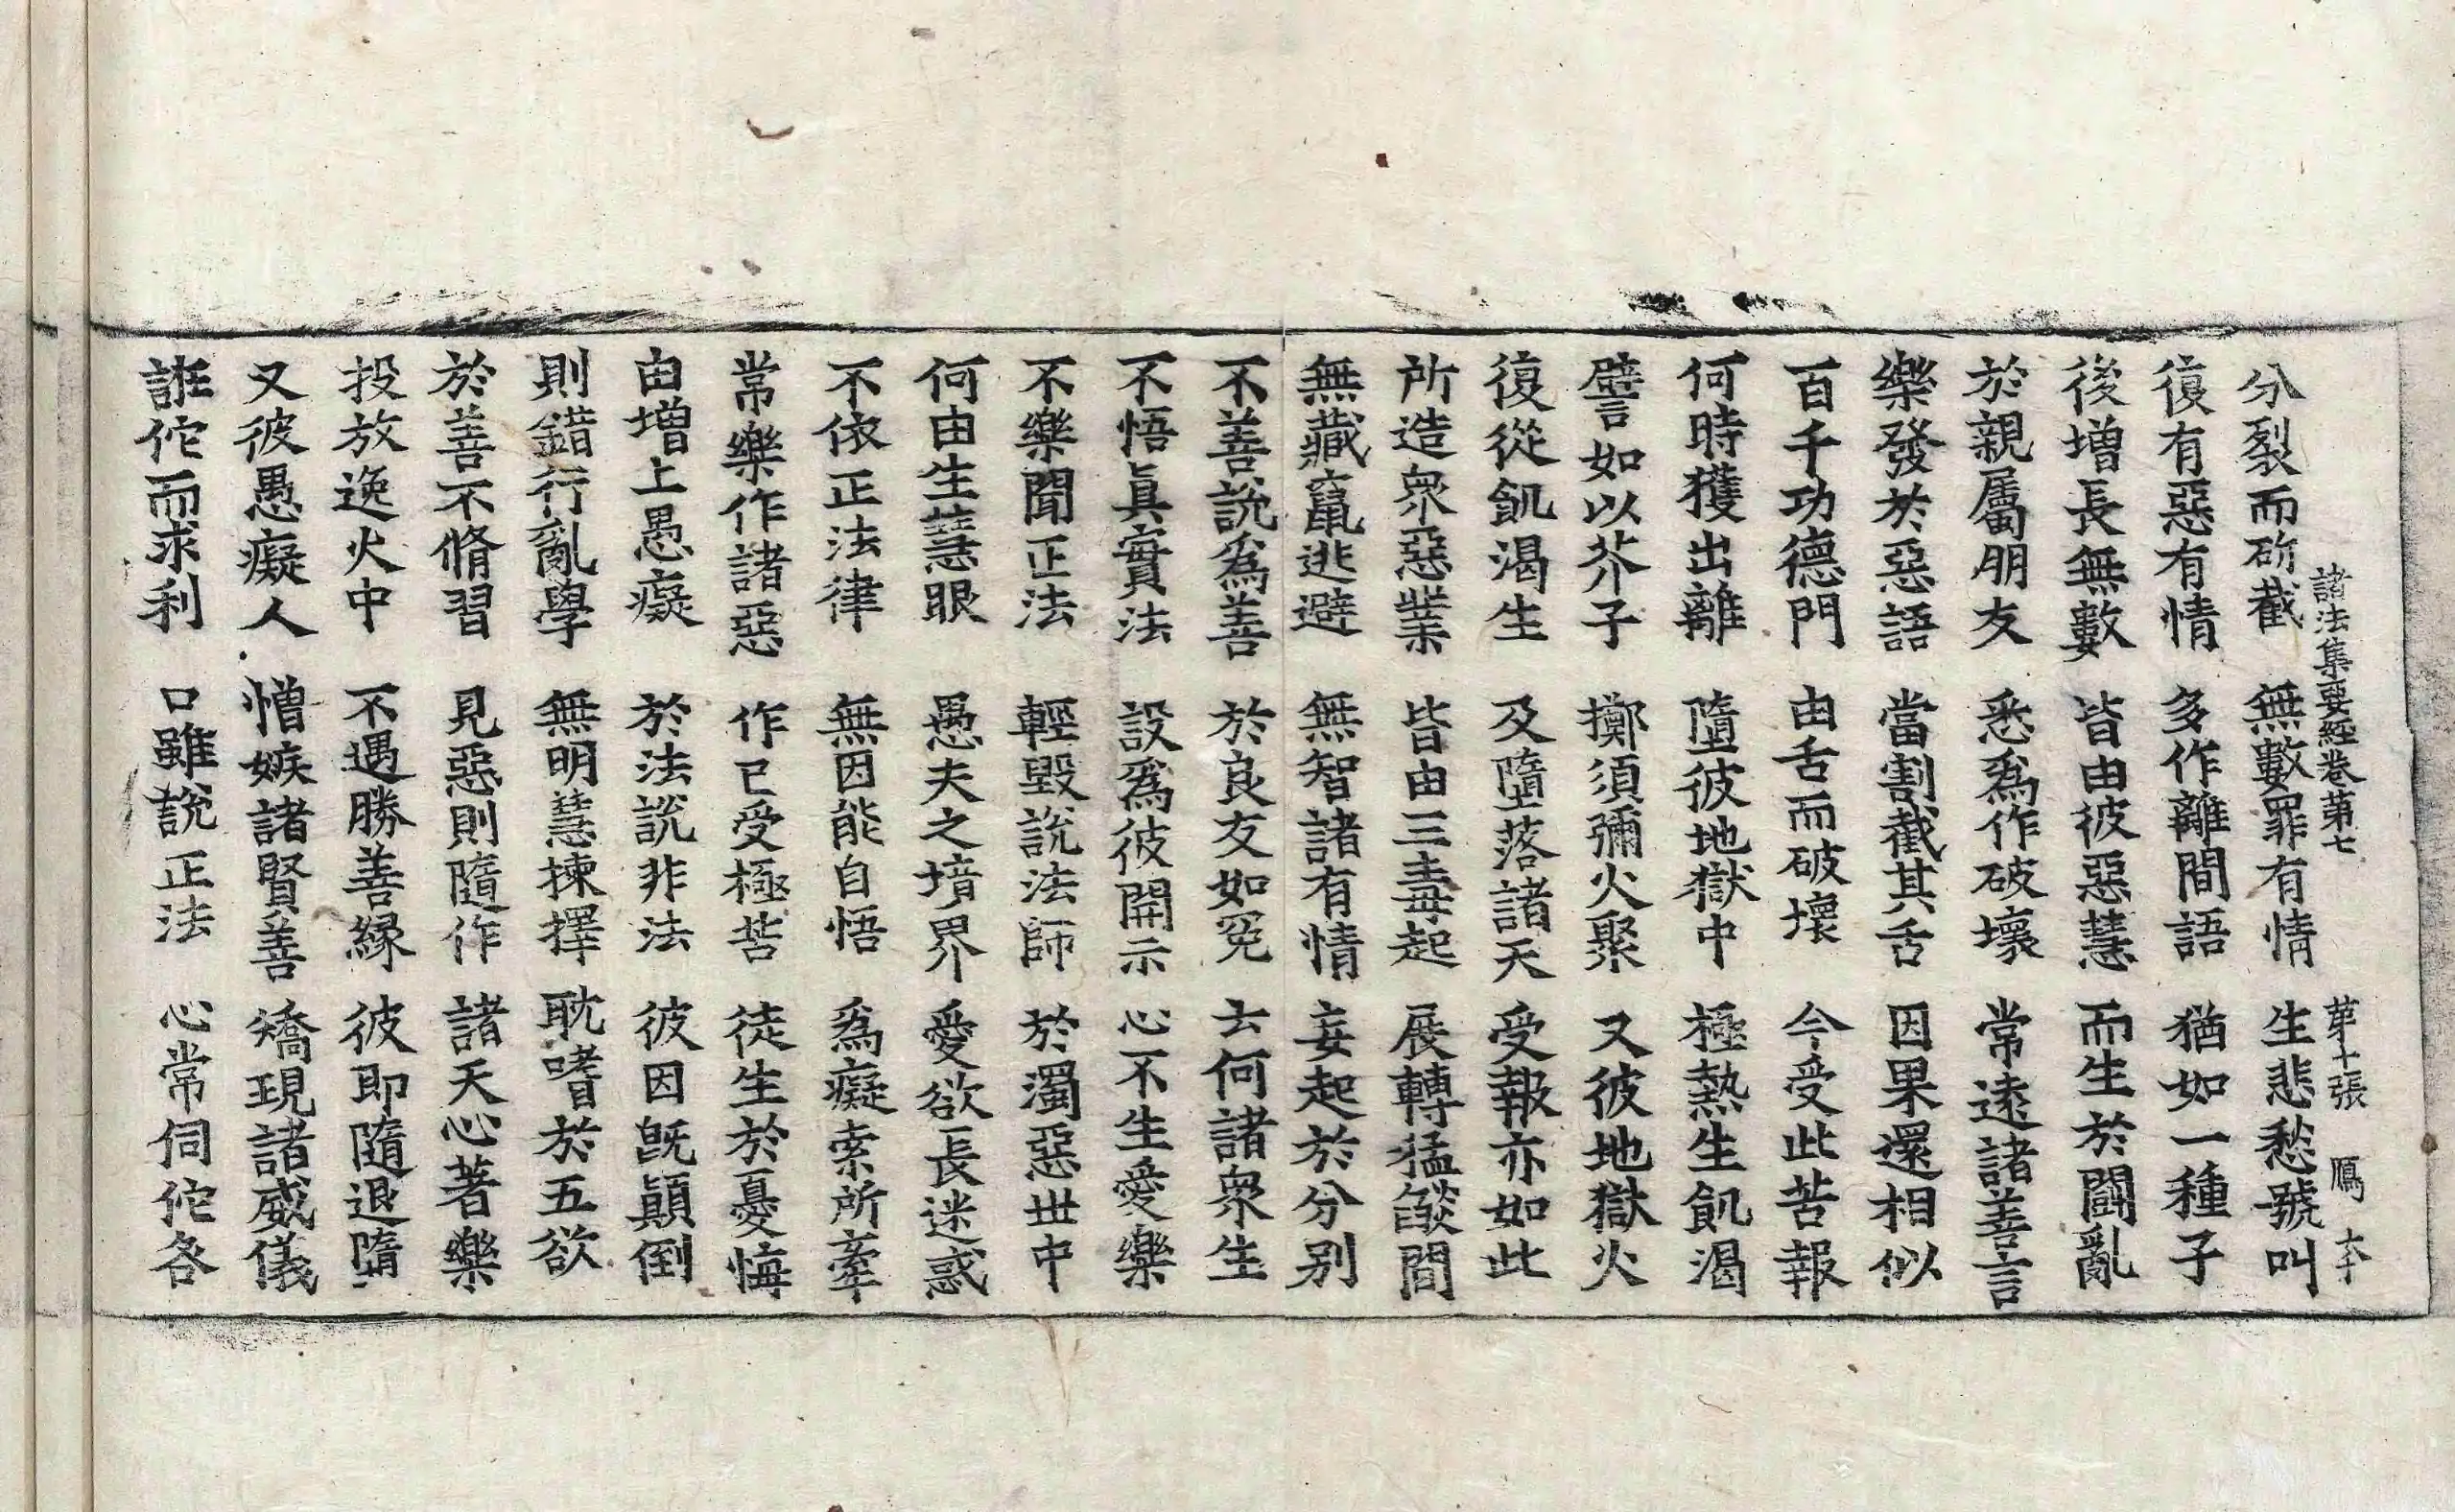 諸法集要經卷第七 第十張 鴈 大
分裂而斫截 無數罪有情 生悲愁號叫
復有惡有情 多作離間語 猶如一種子
後增長無數 皆由彼惡慧 而生於鬪亂
於親屬朋友 悉爲作破壞 常遠諸善言
樂發於惡語 當割截其舌 因果還相似
百千功德門 由舌而破壞 今受此苦報
何時獲出離 墮彼地獄中 極熱生飢渴
譬如以芥子 擲須彌火聚 又彼地獄火
復從飢渴生 及墮落諸天 受報亦如此
所造衆惡業 皆由三毒起 展轉猛燄間
無藏竄逃避 無智諸有情 妄起於分別
不善說爲善 於良友如冤 云何諸衆生
不悟眞實法 設爲彼開示 心不生愛樂
不樂聞正法 輕毀說法師 於濁惡世中
何由生慧眼 愚夫之境界 愛欲長迷惑
不依正法律 無因能自悟 爲癡索所牽
常樂作諸惡 作已受極苦 徒生於憂悔
由增上愚癡 於法說非法 彼因旣顚倒
則錯行亂學 無明慧揀擇 耽嗜於五欲
於善不脩習 見惡則隨作 諸天心著樂
投放逸火中 不遇勝善緣 彼即隨退墮
又彼愚癡人 憎嫉諸賢善 矯現諸威儀
誑佗而求利 口雖說正法 心常伺佗各